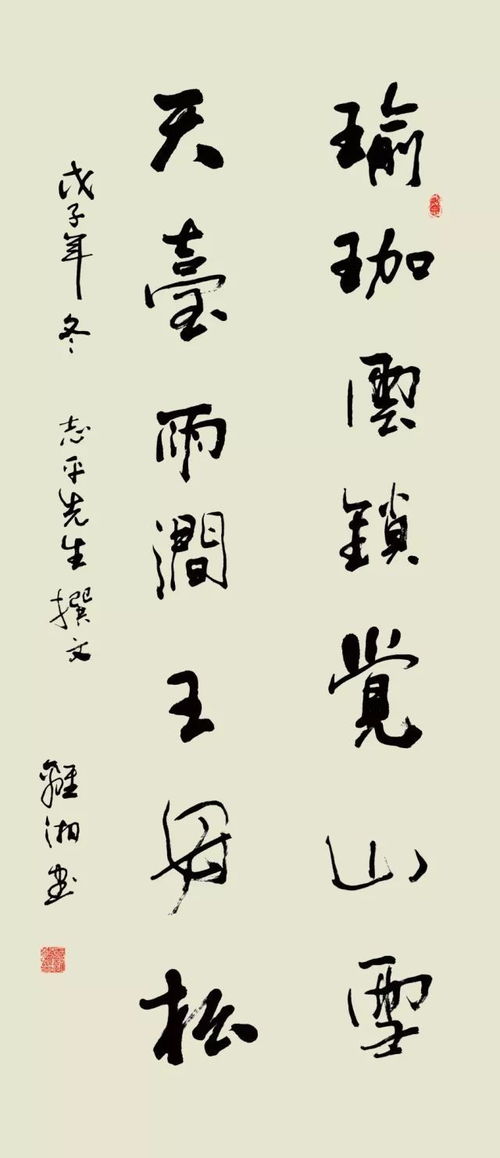 瑜珈雲鎖覺山雪
天臺雨澗王母松
戊子年冬 志平先生撰文
湘書